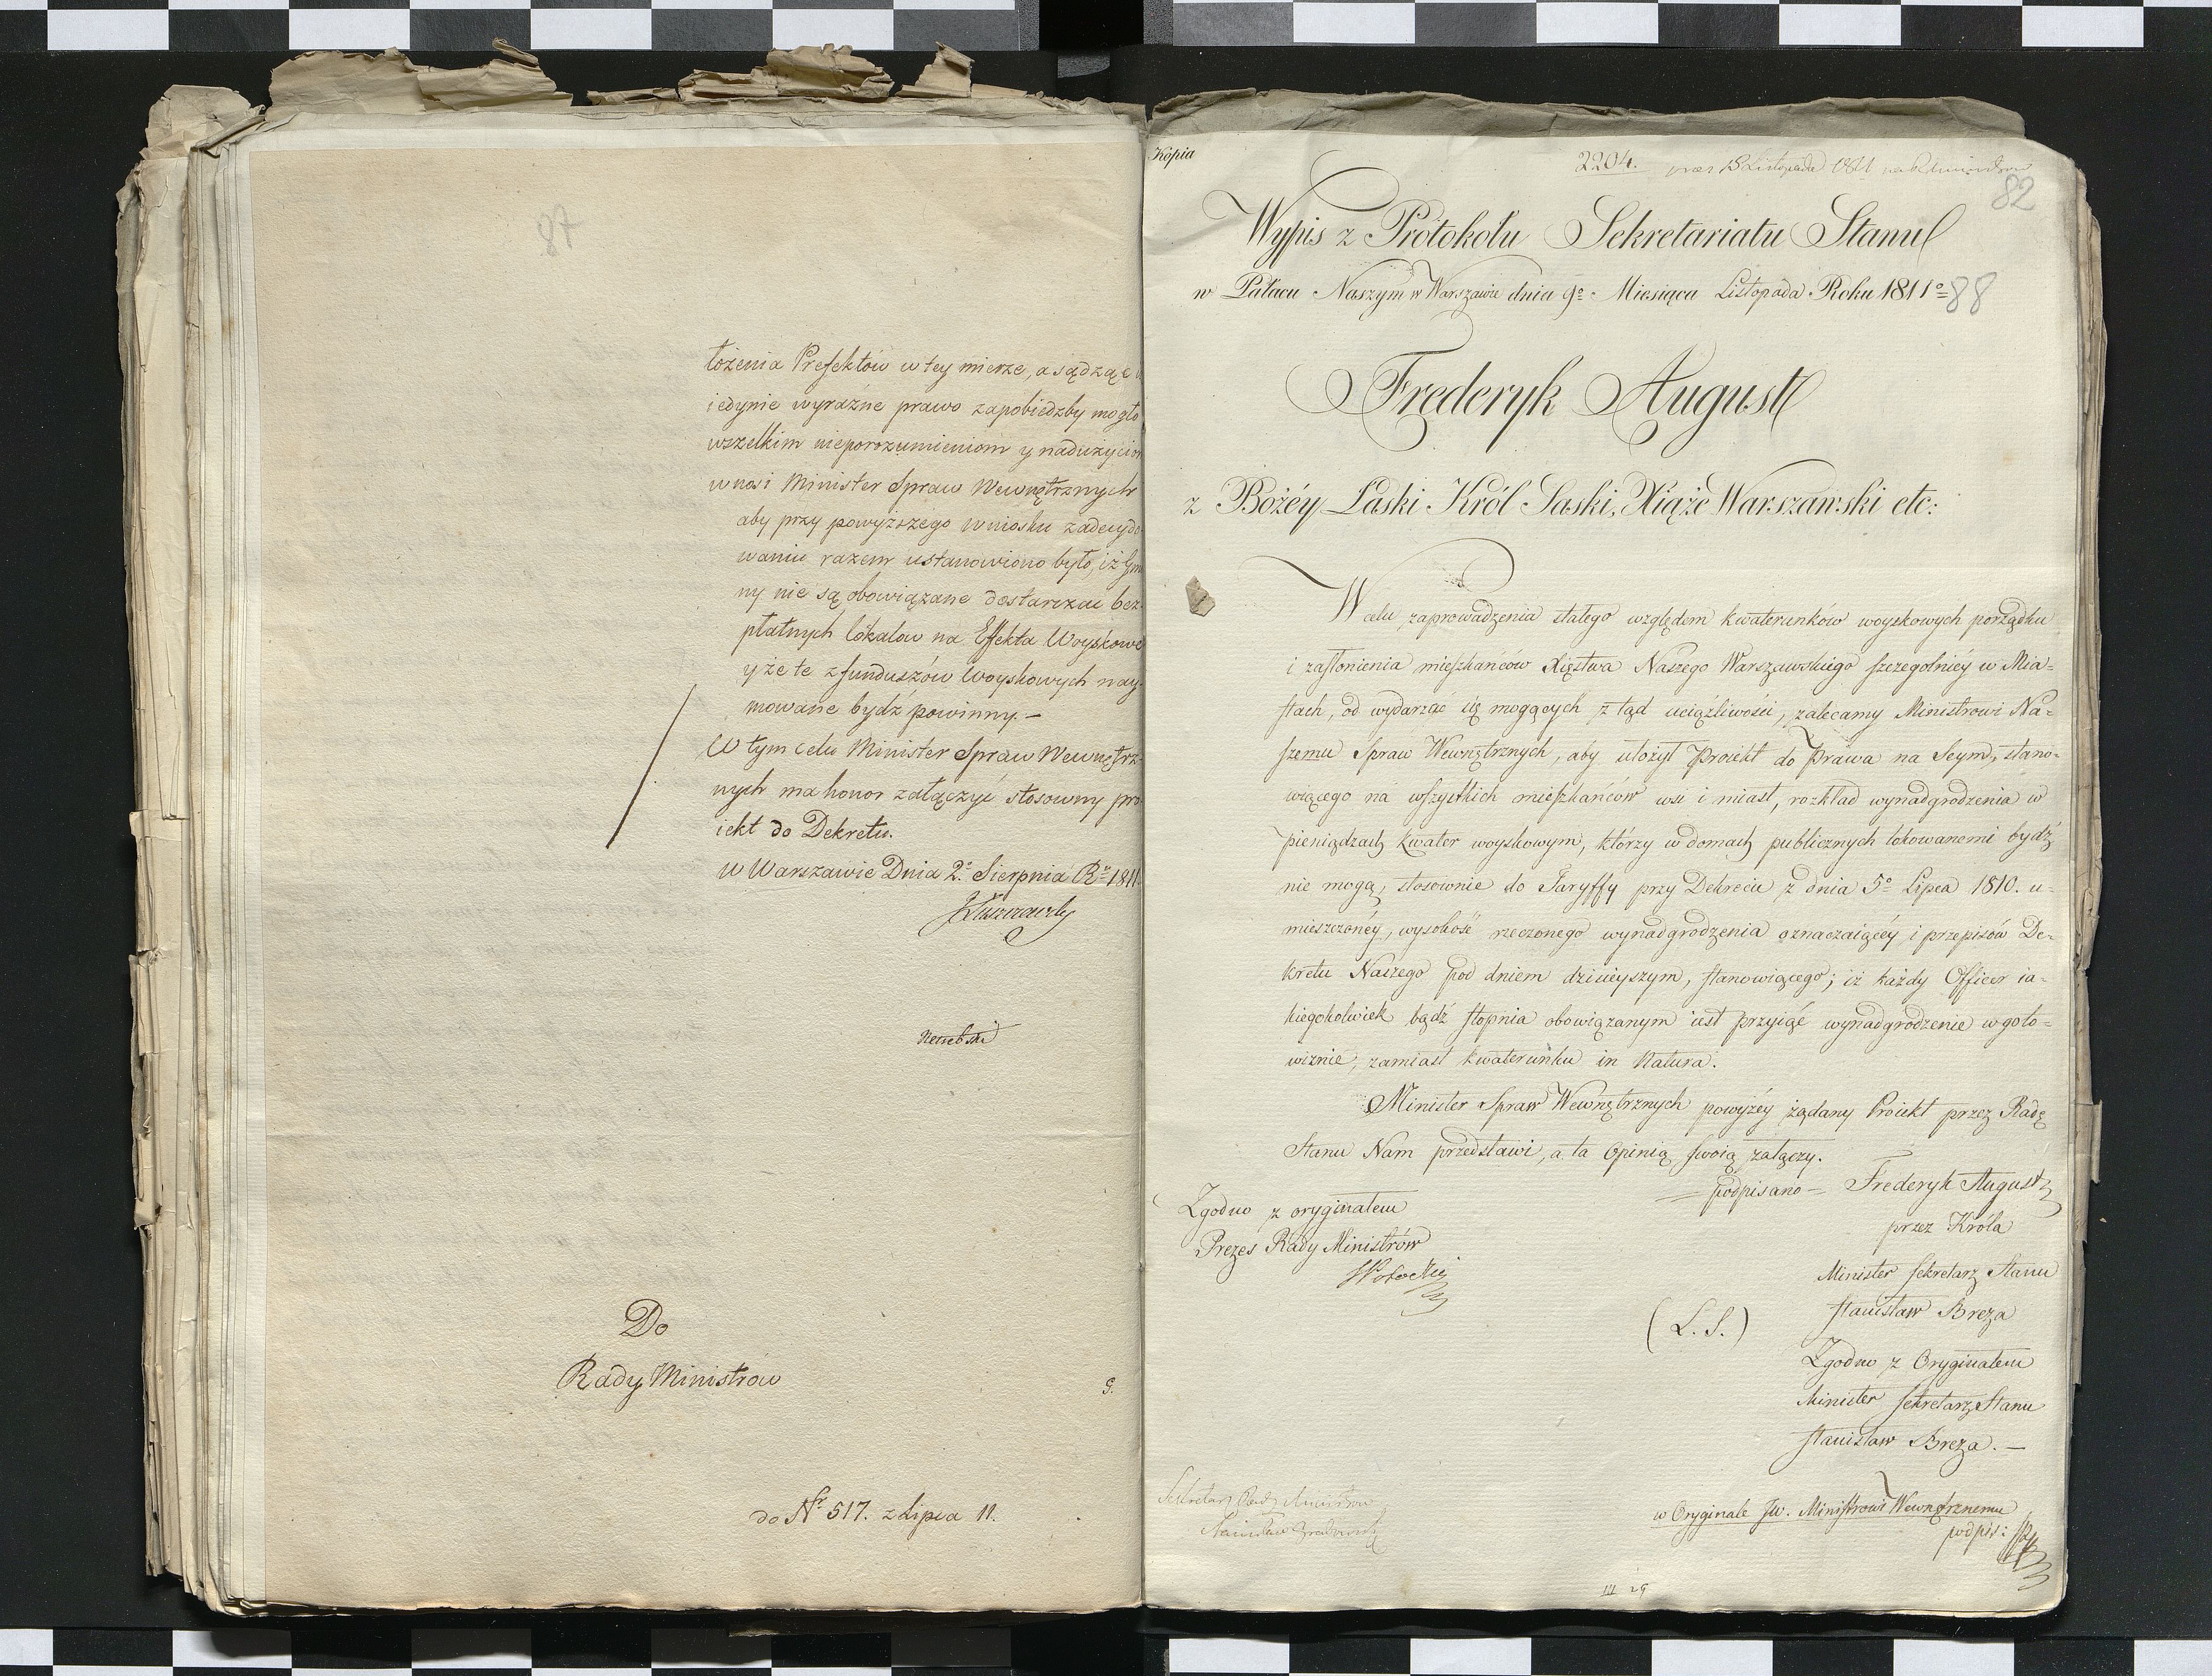 87
łożenia Prefektów w tey mierze, a sądząc
iedynie wyraźne prawo zapobiedzby mogło
wszelkim nieporozumieniom y nadużycio
wnosi Minister Spraw Wewnętrznych
aby przy powyższego wniosku zadecydo
waniu razem ustanowiono było, iż Gmi
ny nie są obowiązane dostarczać bez-
płatnych lokalow na Effekta Woyskowe
y że te z funduszów Woyskowych nay-
mowane bydź powinny. –
W tym celu Minister Spraw Wewnętrz-
nych ma honor załączyć stosowny pro-
iekt do Dekretu.
w Warszawie Dnia 2º Sierpnia Rº 1811
Do
Rady Ministrów
9.
do Nº 517. z Lipca 11.
Kopia
2204.
82
Wypis z Protokołu Sekretariatu Stanu
w Pałacu Naszym w Warszawie dnia 9º Miesiąca Listopada Roku 1811º
88
Frederyk August
z Bożéy Łaski Król Saski, Xiąże Warszawski etc:
W celu zaprowadzenia stałego względem kwaterunków woyskowych porządku
i zasłonienia mieszkańców Xięstwa Naszego Warszawskiego szczególniéy w Mia=
stach, od wydarzać się mogących z tąd uciążliwości, zalecamy Ministrowi Na=
szemu Spraw Wewnętrznych, aby ułożył Proiekt do Prawa na Seym, stano-
wiącego na wszystkich mieszkańców wsi i miast, rozkład wynadgrodzenia w
pieniądzach kwater woyskowym, którzy w domach publicznych lokowanemi bydź
nie mogą, stosownie do Taryffy przy Dekrecie z dnia 5º Lipca 1810. u-
mieszczonéy, wysokość rzeczonego wynadgrodzenia oznaczaiącéy i przepisów De-
kretu Naszego pod dniem dzisieyszym, stanowiącego; iż każdy Officer ia-
kiegokolwiek bądź stopnia obowiązanym iest przyiąć wynadgrodzenie w goto=
wiznie, zamiast kwaterunku in Natura.
Minister Spraw Wewnętrznych powyżéy żądany Proiekt przez Radę
Stanu Nam przedstawi, a ta Opinią swoią załączy.
– podpisano – Frederyk August
przez Króla
Minister Sekretarz Stanu
Stanisław Breza
(L. S.)
Zgodno z Oryginałem
Minister Sekretarz Stanu
Stanisław Breza. –
Zgodno z oryginałem
Prezes Rady Ministrów
Potocki
Sekretarz Rady Ministrów
Stanisław Grabowski
w Oryginale JW. Ministrowi Wewnętrznemu
podpis:
29